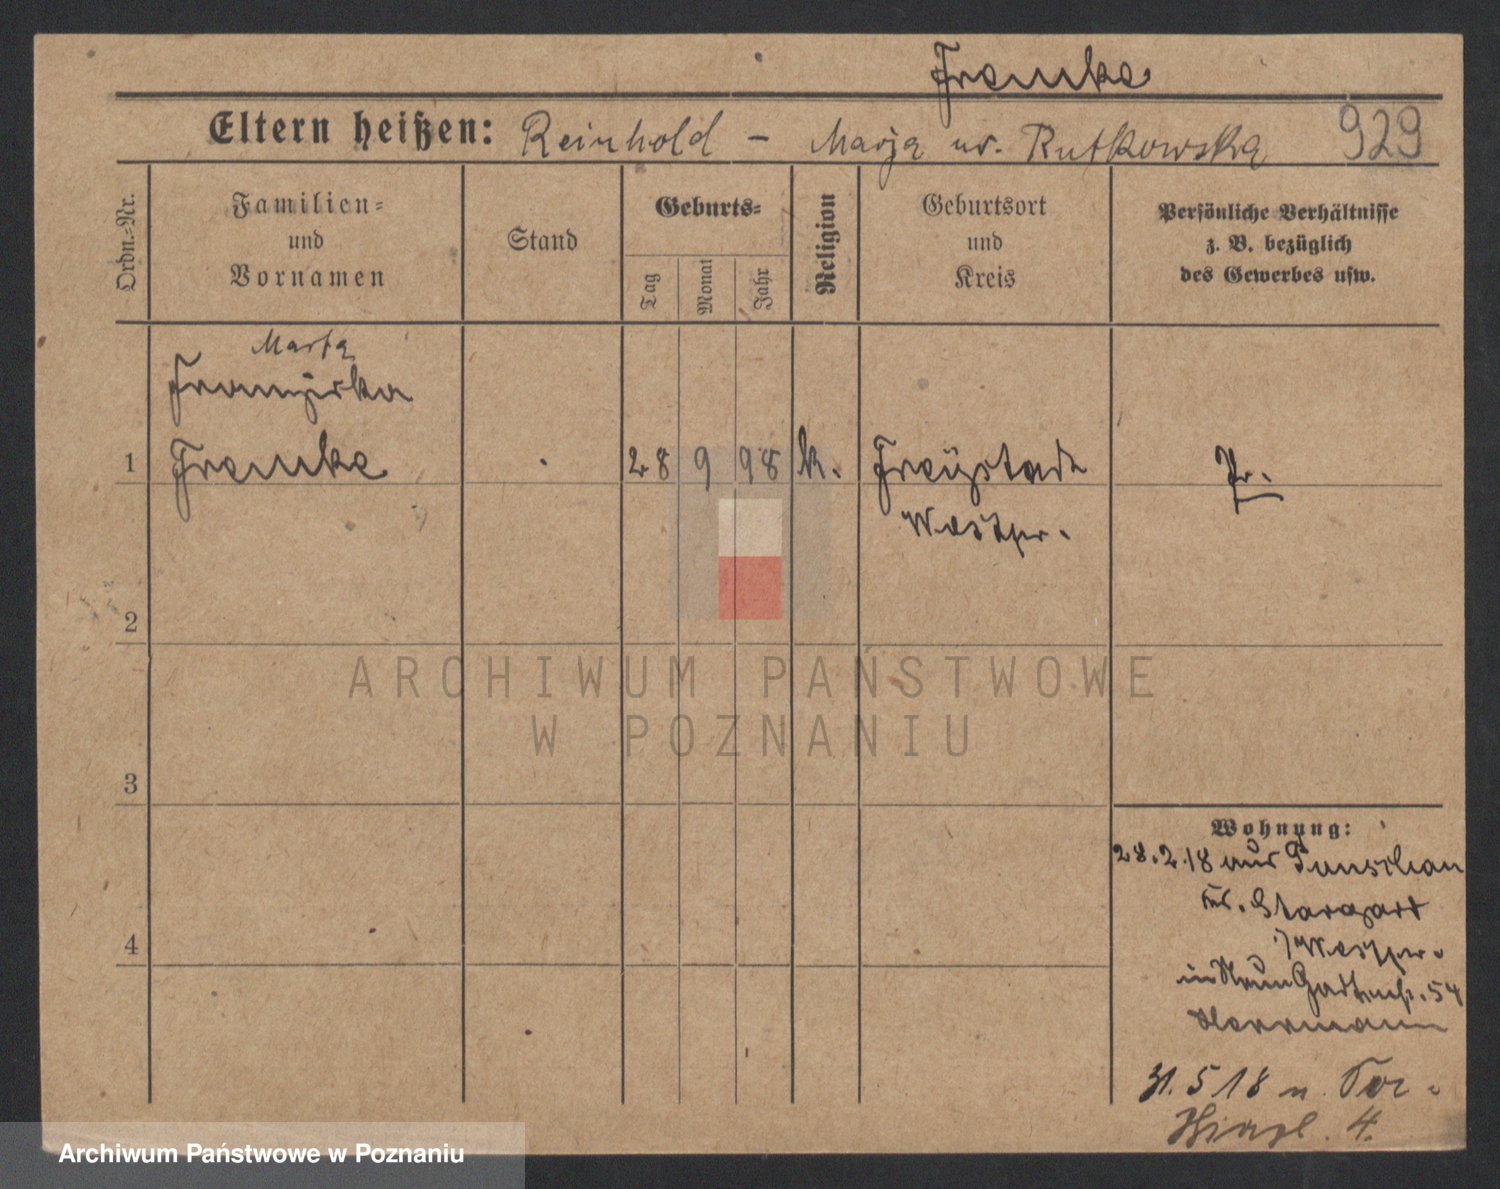 Franke
Eltern heißen: Reinhold - Marja ur. Rutkowska 929
Ordn.-Nr.
Familien=
und
Vornamen
Stand
Geburts=
Tag
Monat
Jahr
Religion
Geburtsort
und
Kreis
Persönliche Verhältnisse
z. B. bezüglich
des Gewerbes usw.
Marta
Franziska
1 Franke . 28 9 98 k. Freystadt Pr.
Westpr.
2
3
4
Wohnung:
28.2.18 aus
Kr. Stargard
Westpr.
in 54
Herrmann
31.5 18 n.
4.
ARCHIWUM PAŃSTWOWE
W POZNANIU
Archiwum Państwowe w Poznaniu